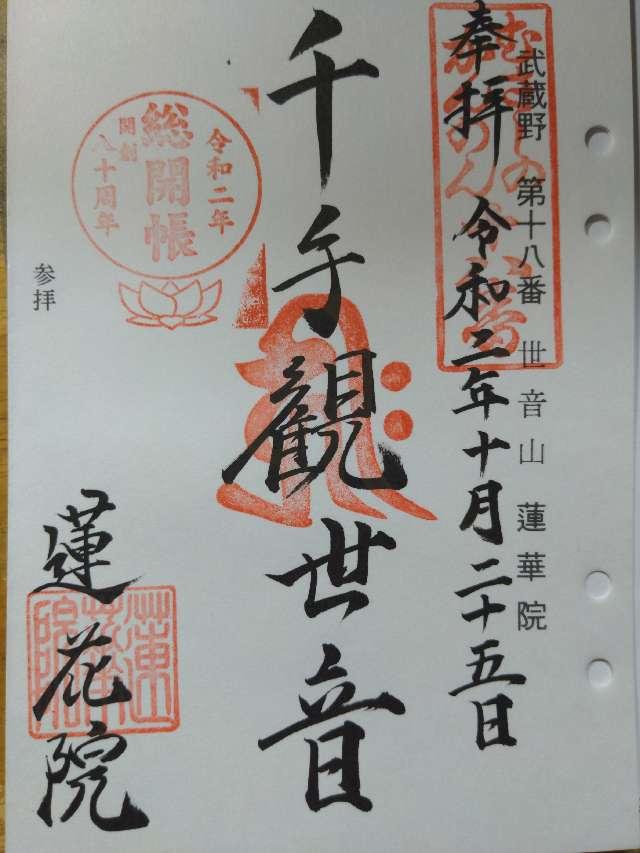 武蔵野 第十八番 世音山 蓮華院
奉拝 令和二年十月二十五日
千手観世音
令和二年
総開帳
開創
八十周年
参拝
蓮花院